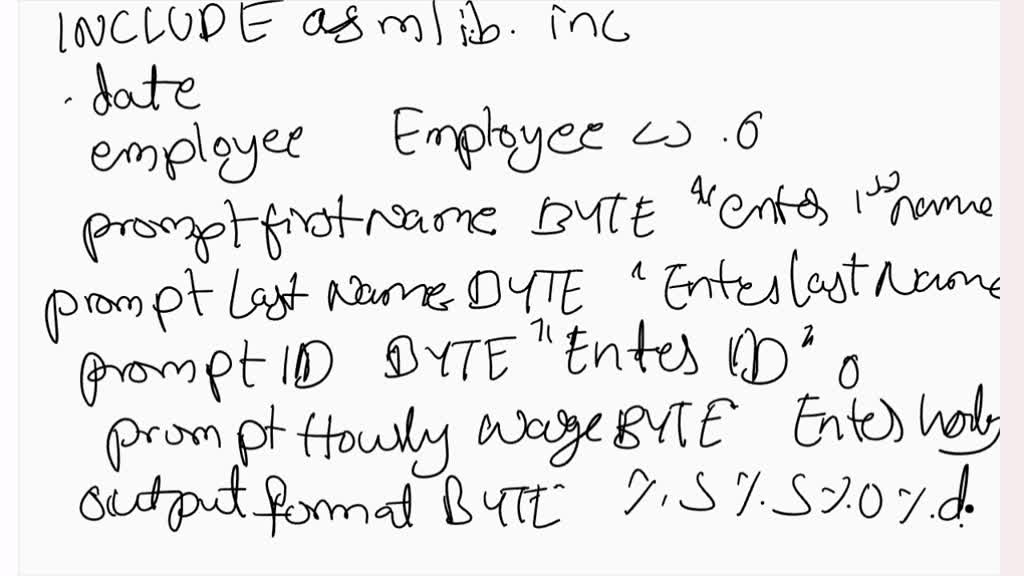 INCLUDE asmlib. inc
. date
employee Employee <> . 0
promptfirstName BYTE "enter 1st name
prompt Last Name BYTE "Enter last Name
prompt ID BYTE "Enter ID" 0
prompt Hourly wage BYTE Enter hourly
output format BYTE %. S %. S %. 0 %. d.